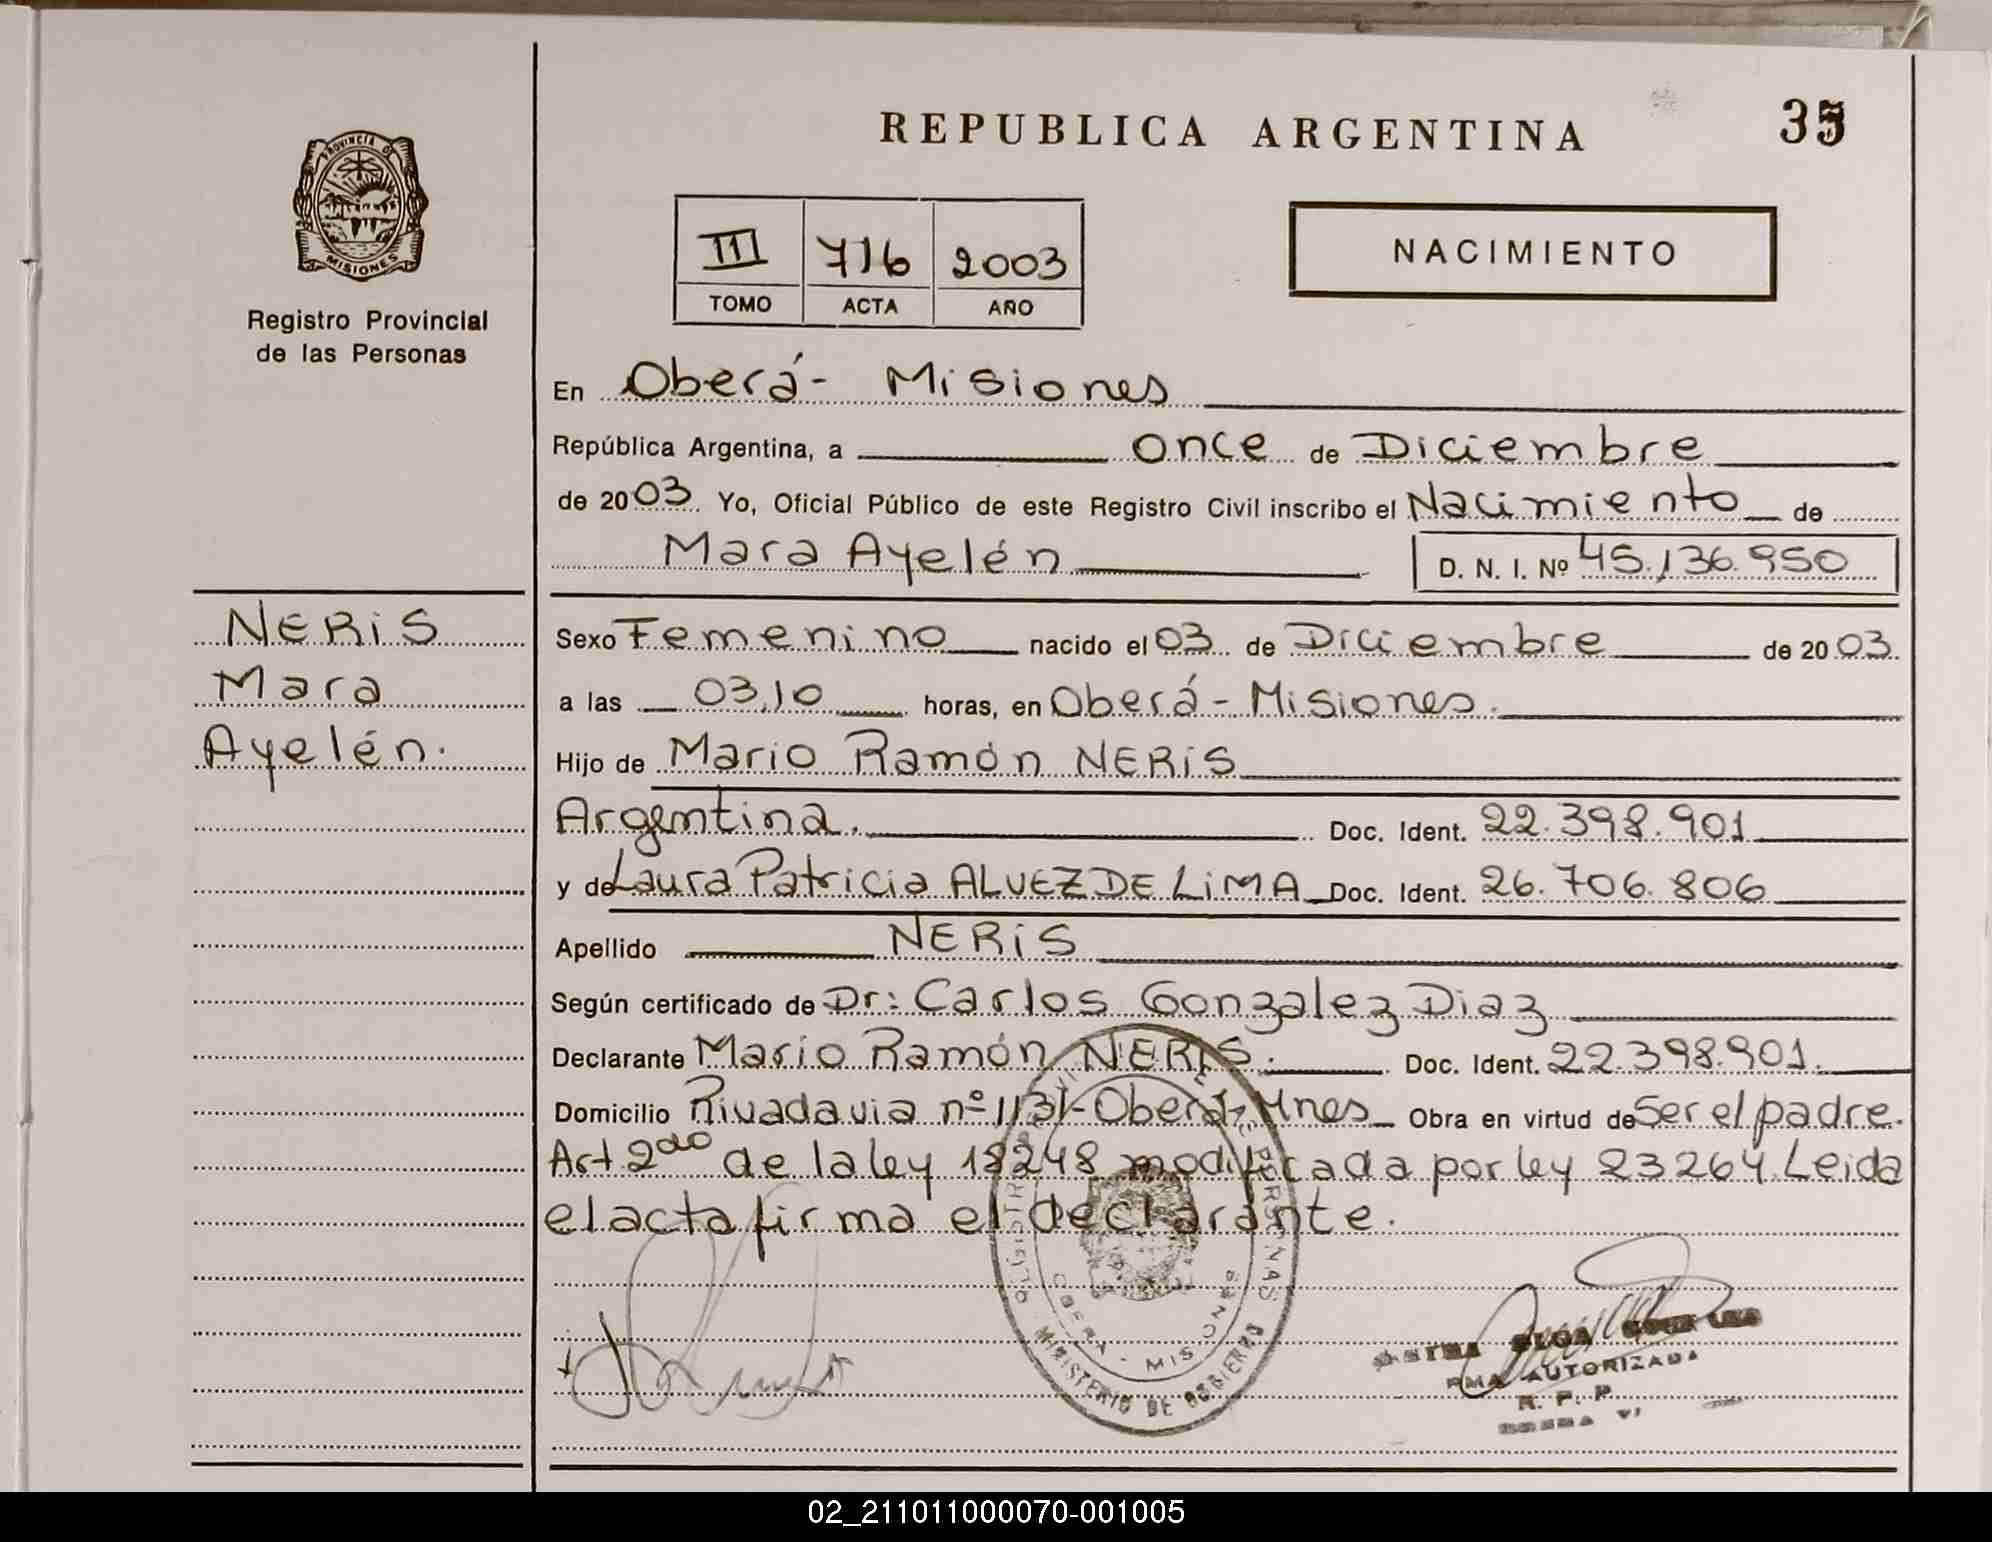 REPUBLICA ARGENTINA
35
PROVINCIA DE
MISIONES
Registro Provincial
de las Personas
III 716 2003
TOMO ACTA AÑO
NACIMIENTO
En Oberá- Misiones
República Argentina, a once de Diciembre
de 2003. Yo, Oficial Público de este Registro Civil inscribo el Nacimiento de
Mara Ayelén D. N. I. Nº 45.136.950
NERiS
Mara
Ayelén.
Sexo Femenino nacido el 03 de Diciembre de 2003.
a las 03,10 horas, en Oberá - Misiones.
Hijo de Mario Ramón NERiS
Argentina. Doc. Ident. 22.398.901
y de Laura Patricia ALVEZ DE LiMA Doc. Ident. 26.706.806
Apellido NERiS
Según certificado de Dr: Carlos Gonzalez Diaz
Declarante Mario Ramón NERIS. Doc. Ident. 22.398.901.
Domicilio Rivadavia nº 1131-Oberá-Mnes Obra en virtud de Ser el padre.
Art 2do de la ley 18248 modificada por ley 23264. Leida
el acta firma el declarante.
OBERA - MISIONES
MINISTERIO DE GOBIERNO
AUTORIZADA
R. P. P.
02_211011000070-001005